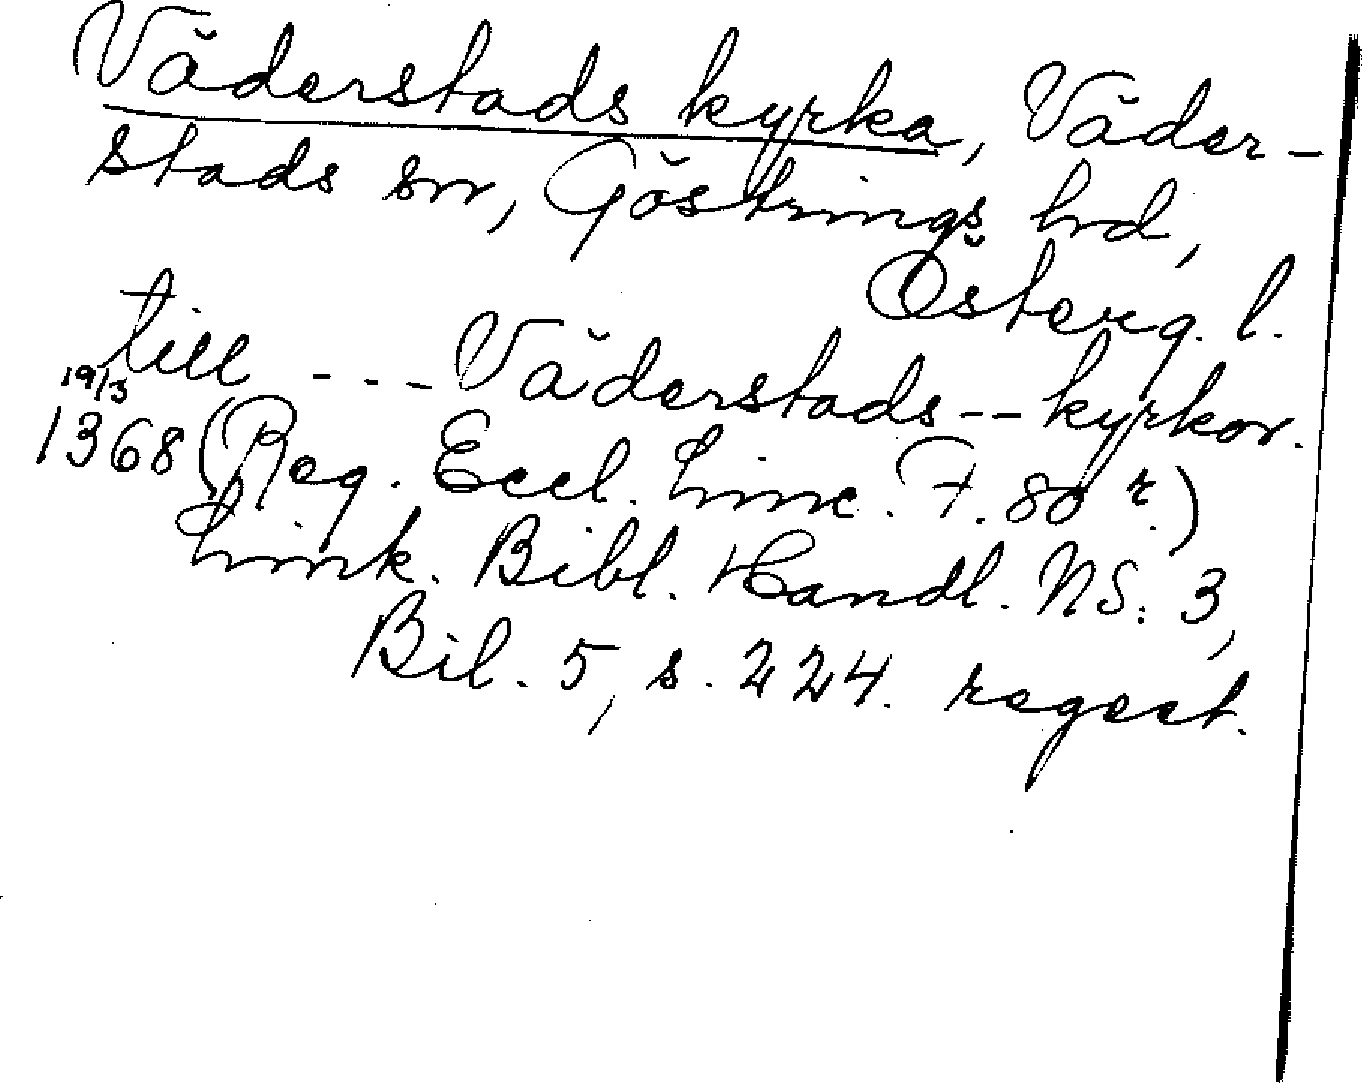 Väderstads kyrka, Väder-
stads sn, Göstrings hd,
Österg. l.
till --- Väderstads -- kyrkor.
19/3
1368 (Reg. Eccl. Linc. F. 80 r.)
Link. Bibl. Handl. NS: 3,
Bil. 5, s. 224. regest.